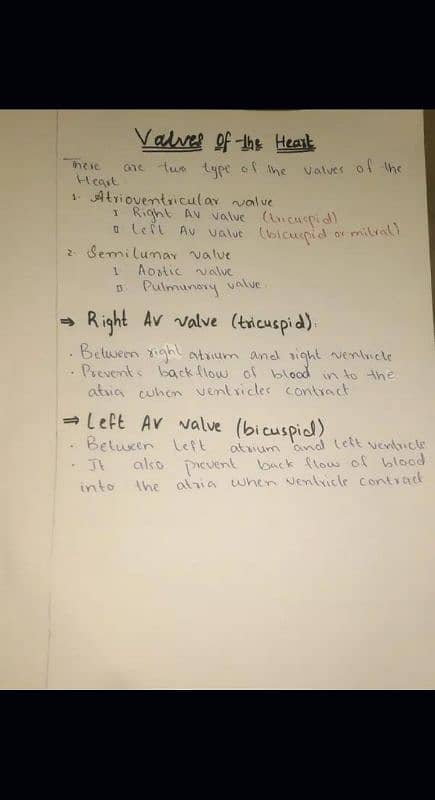 Valves of the Heart
There are two type of the valves of the
Heart
1. Atrioventricular valve
I Right AV valve (tricuspid)
II Left AV valve (bicuspid or mitral)
2. Semilunar valve
I Aostic valve
II Pulmunory valve.
⇒ Right AV valve (tricuspid).
· Between right atrium and right ventricle
· Prevents backflow of blood in to the
atria when ventricles contract
⇒ Left AV valve (bicuspid)
· Between left atrium and left ventricle
· It also prevent back flow of blood
into the atria when ventricle contract